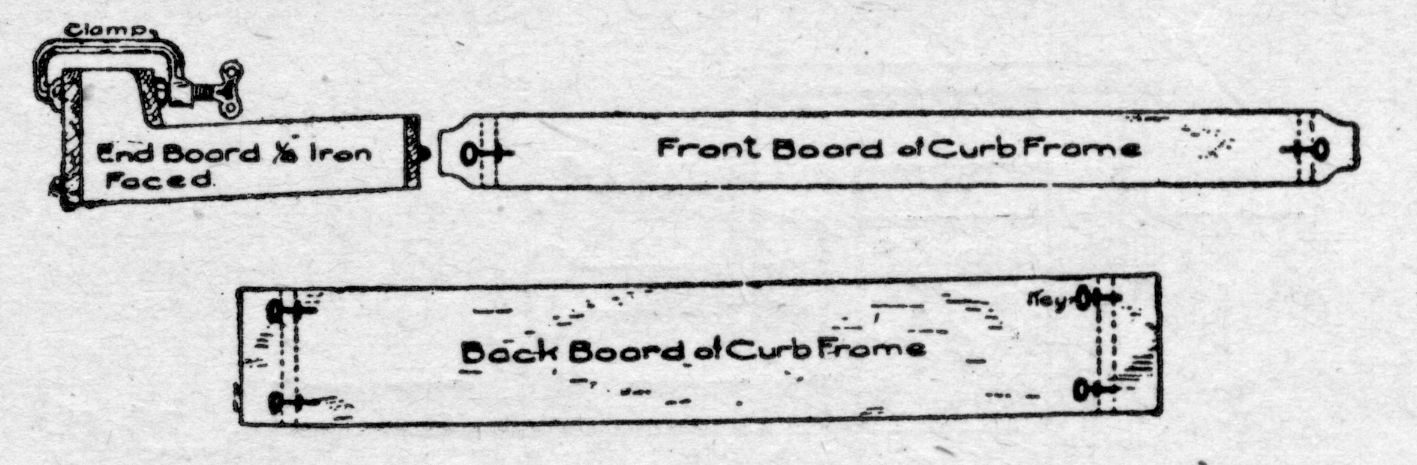 Clamp
End Board ⅛ Iron
Faced.
Front Board of Curb Frame
Key
Back Board of Curb Frame